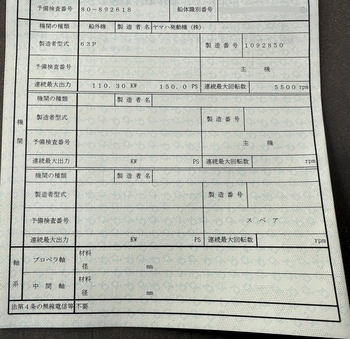 予備検査番号 80-892618 船体識別番号
機関の種類 船外機 製造者名 ヤマハ発動機(株)
製造者型式 63P 製造番号 1092850
予備検査番号 主機
連続最大出力 110.30 KW 150.0 PS 連続最大回転数 5500 rpm
機関の種類 製造者名
製造者型式 製造番号
機関
予備検査番号 主機
連続最大出力 KW PS 連続最大回転数 rpm
機関の種類 製造者名
製造者型式 製造番号
予備検査番号 スペア
連続最大出力 KW PS 連続最大回転数 rpm
軸系
プロペラ軸 材料
径 mm
中間軸 材料
径 mm
法第4条の無線電信等 不要